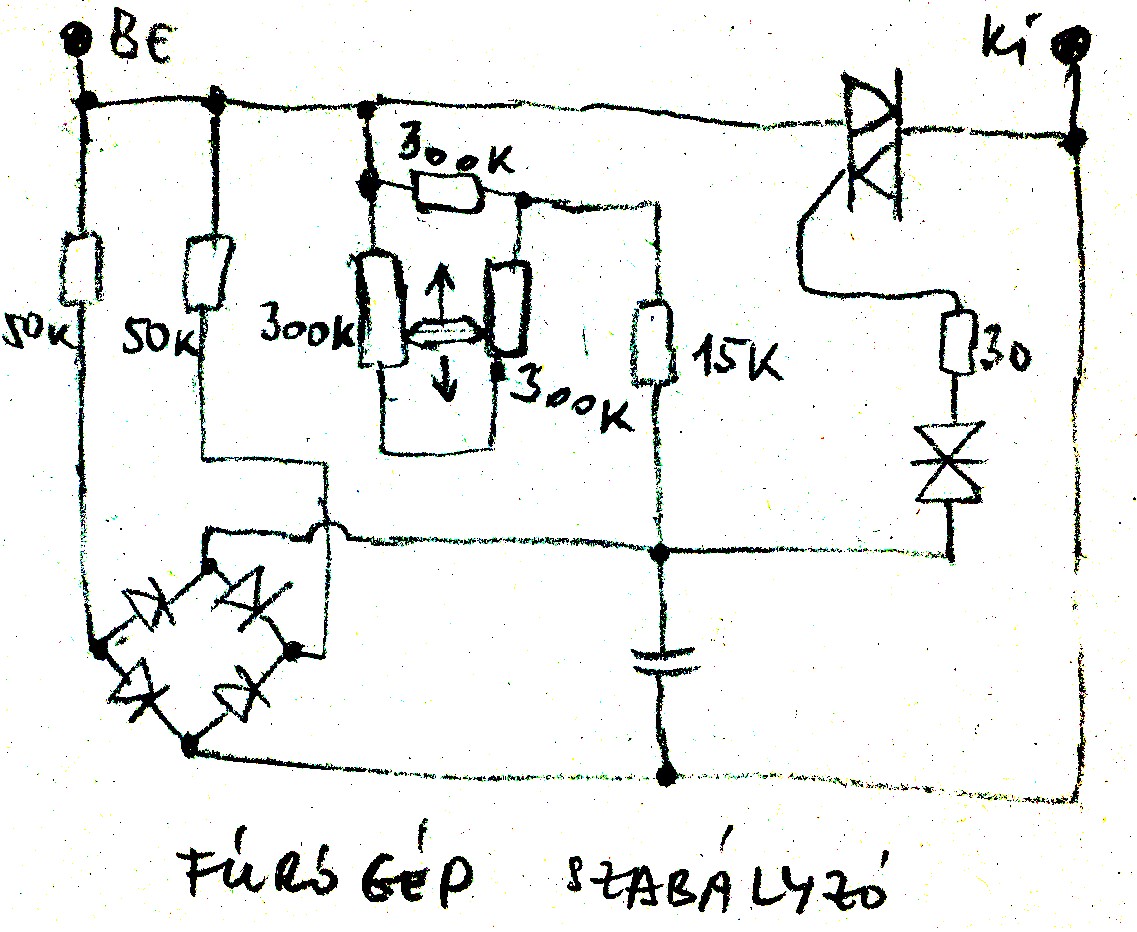 BE
Ki
300K
50K
50K
300K
300K
15K
30
FÚRÓGÉP SZABÁLYZÓ